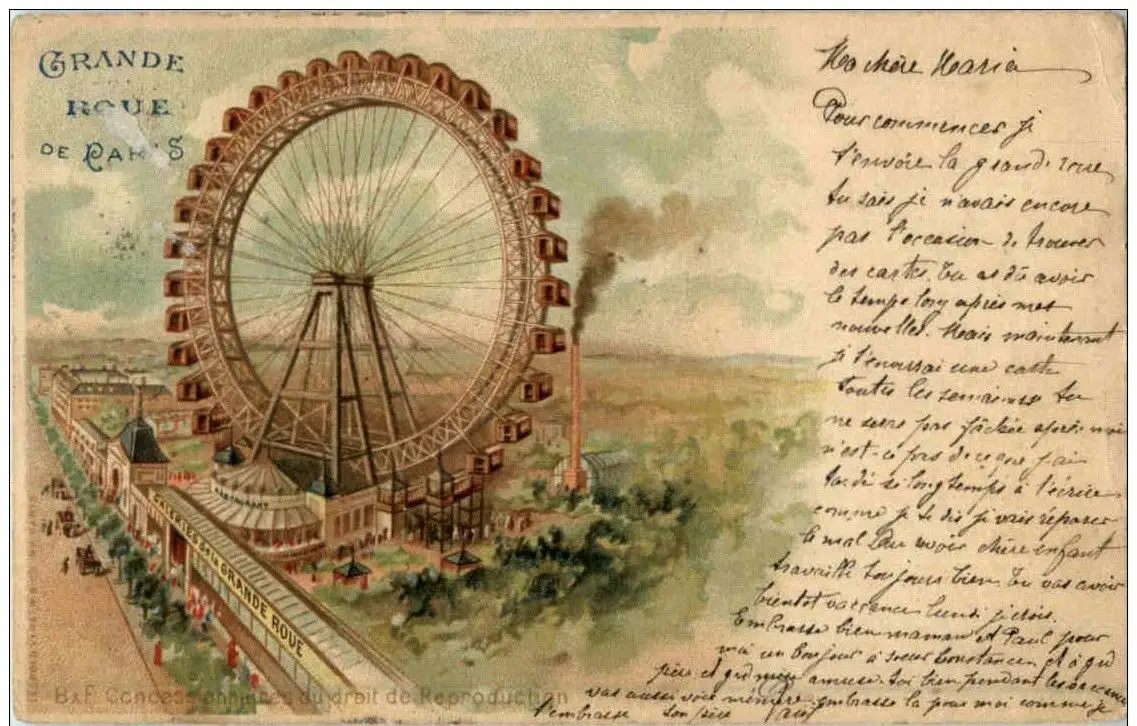 GRANDE
ROUE
DE PARIS
Ma chère Maria
Pour commencer je
t'envoie la grande roue
tu sais je n'avais encore
pas l'occasion de trouver
des cartes. Tu as dû avoir
le temps long après mes
nouvelles. Mais maintenant
je t'enverrai une carte
toutes les semaines tu
ne seras pas fâchée après moi
n'est-ce pas de ce que j'ai
tardé si longtemps à t'écrire
comme je te dis je vais réparer
le mal Au revoir chère enfant
travaille toujours bien tu vas avoir
bientôt vaccance lundi je crois.
Embrasse bien maman et Paul pour
moi un bonjour à soeur Constance et à gd
père et gd mère amuse toi bien pendant les vaccances
vas aussi voir mémère embrasse la pour moi comme je
t'embrasse ton père Paul
RESTAURANT
GALERIES DE LA GRANDE ROUE
B x F Concessionnaires du droit de Reproduction